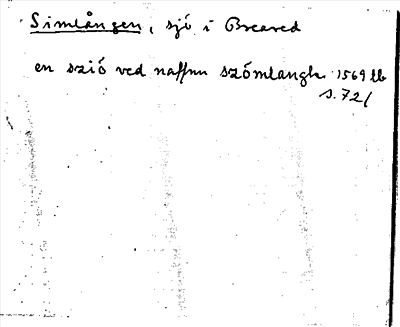 Simlången, sjö i Breared
en szió ved naffnn szómlangh 1569 lb
s. 72/